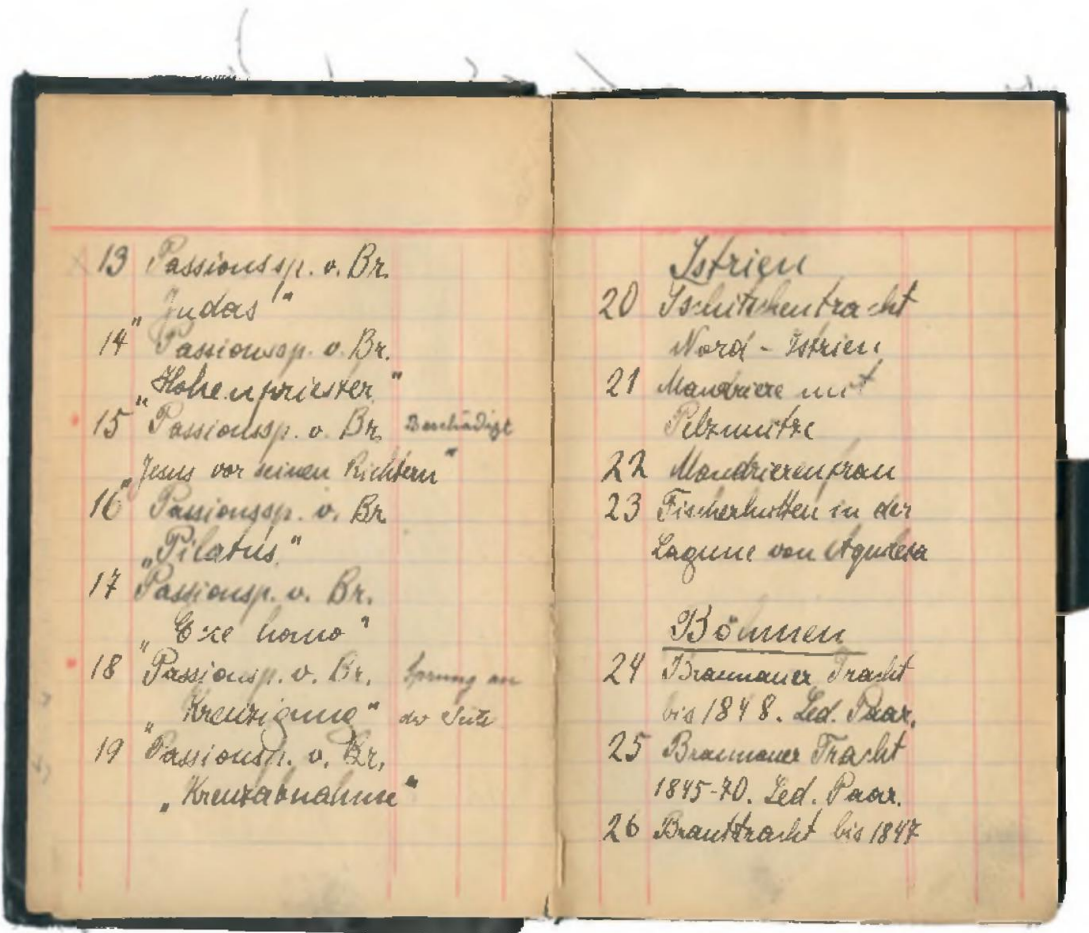 13 Passionssp. v. Br.
„Judas"
14 Passionssp. v. Br.
„Hohenpriester"
15 Passionssp. v. Br. Beschädigt
„Jesus vor seinen Richtern"
16 Passionssp. v. Br
„Pilatus"
17 Passionsp. v. Br.
„Ecce homo"
18 Passionsp. v. Br. Sprung an
„Kreuzigung" der Seite
19 Passionsp. v. Br.
„Kreuzabnahme"
Istrien
20 Tschitschentracht
Nord - Istrien
21 Mandriere mit
Pelzmütze
22 Mandrierenfrau
23 Fischerhütten in der
Lagune von
Böhmen
24 Braunauer Tracht
bis 1848. Led. Paar.
25 Braunauer Tracht
1845-70. Led. Paar.
26 Brauttracht bis 1847